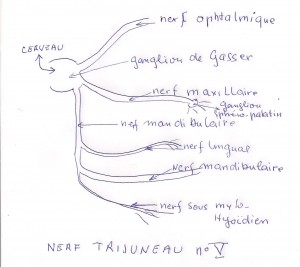 nerf ophtalmique
CERVEAU
ganglion de Gasser
nerf maxillaire
ganglion
sphéno-palatin
nerf mandibulaire
nerf lingual
nerf mandibulaire
nerf sous mylo-
Hyoïdien
NERF TRIJUNEAU n° V